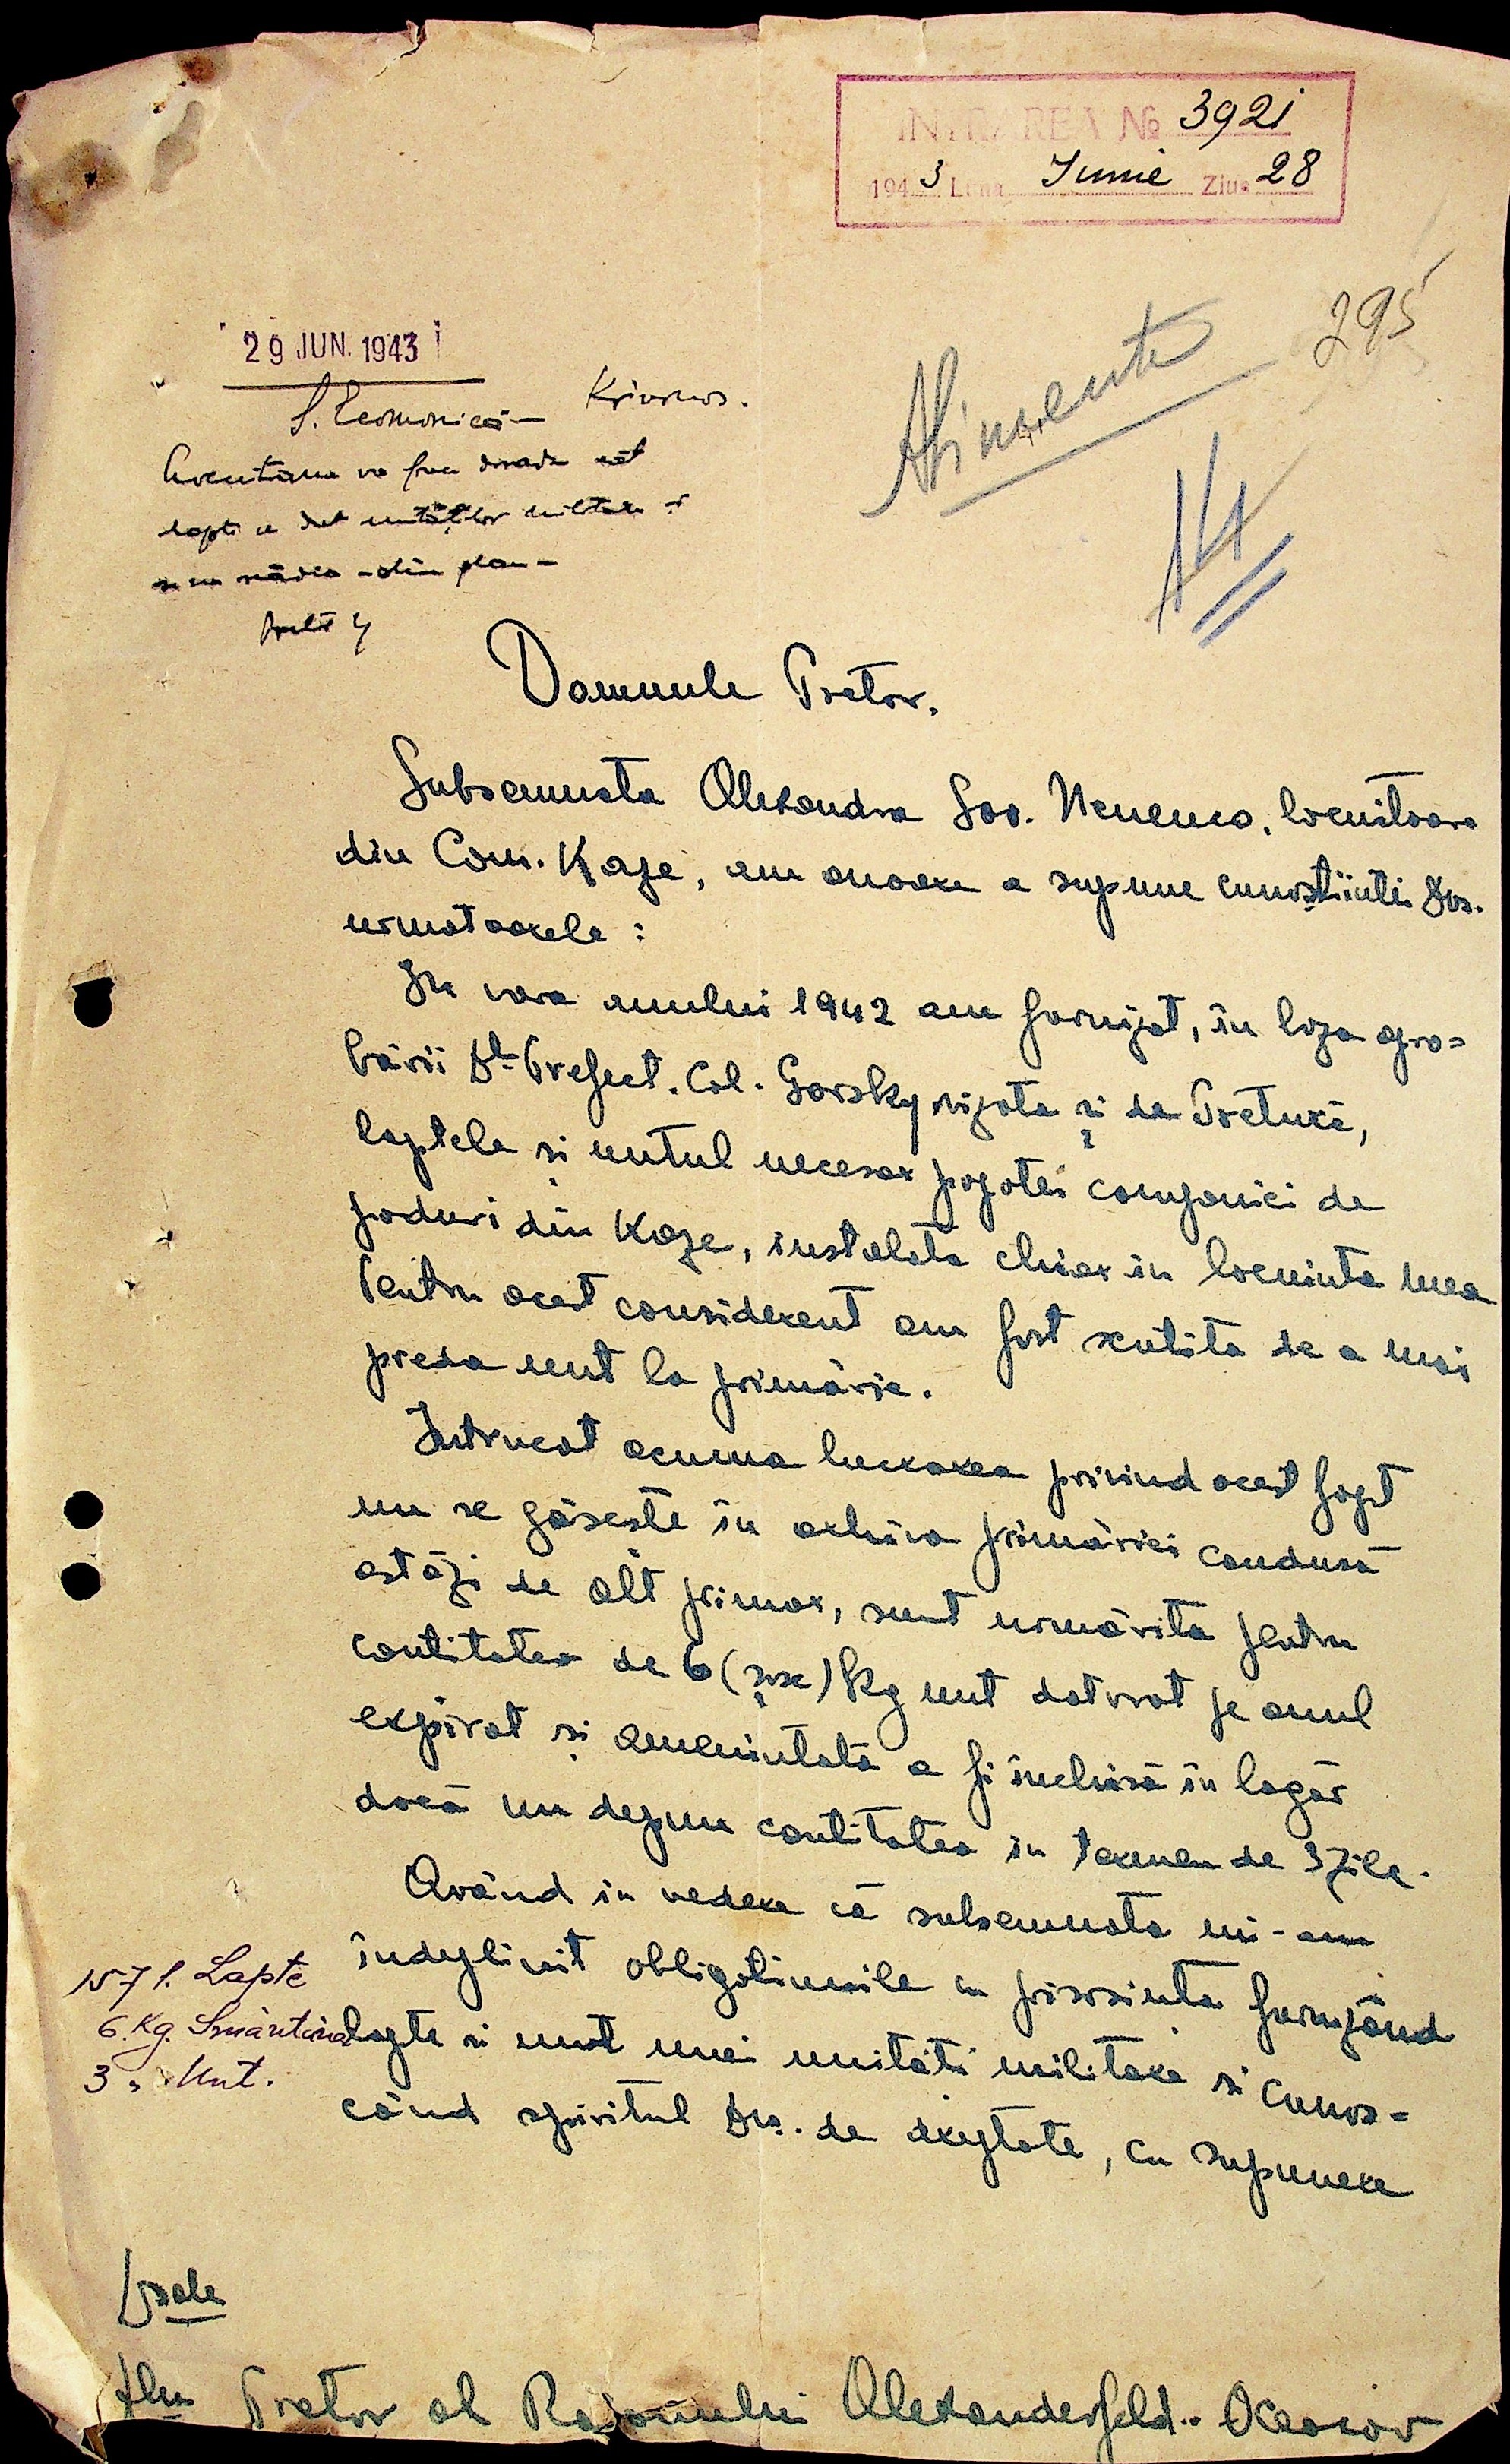 INTRAREA № 3921
1943 Luna Iunie Ziua 28
295
29 JUN. 1943
S. Economică-
va face dovada cât
lapte a dat unităților militare și
se va scădea - din plan -
Alimente
Domnule Pretor,
Subsemnata Alexandra Sav. Nenenco, locuitoare
din Com. Kaze, am onoare a supune cunoștiinței Dvs.
urmatoarele:
In vara anului 1942 am furnizat, în baza apro=
bării Dlui Prefect. Col. Gorsky vizata și de Pretură,
laptele și untul necesar popotei companiei de
poduri din Kaze, instalată chiar in locuinta mea
Pentru acest considerent am fost scutita de a mai
preda unt la primărie.
Intrucat acuma lucrarea privind acest fapt
nu se găseste în arhiva primăriei condusă
astăzi de alt primar, sunt urmărita pentru
cantitatea de 6 (șase) kg unt datorat pe anul
expirat și amenintată a fi închisă în lagăr
dacă nu depun cantitatea in termen de 3 zile.
Având in vedere că subsemnata mi-am
îndeplinit obligatiunile cu prisosinta furnizând
lapte si unt unei unităti militare si cunos-
când spiritul Dvs. de dreptate, cu supunere
157 l. Lapte
6. Kg. Smântână
3 " Unt.
Dsale
Dlui Pretor al Raionului Alexanderfeld.. Oceacov